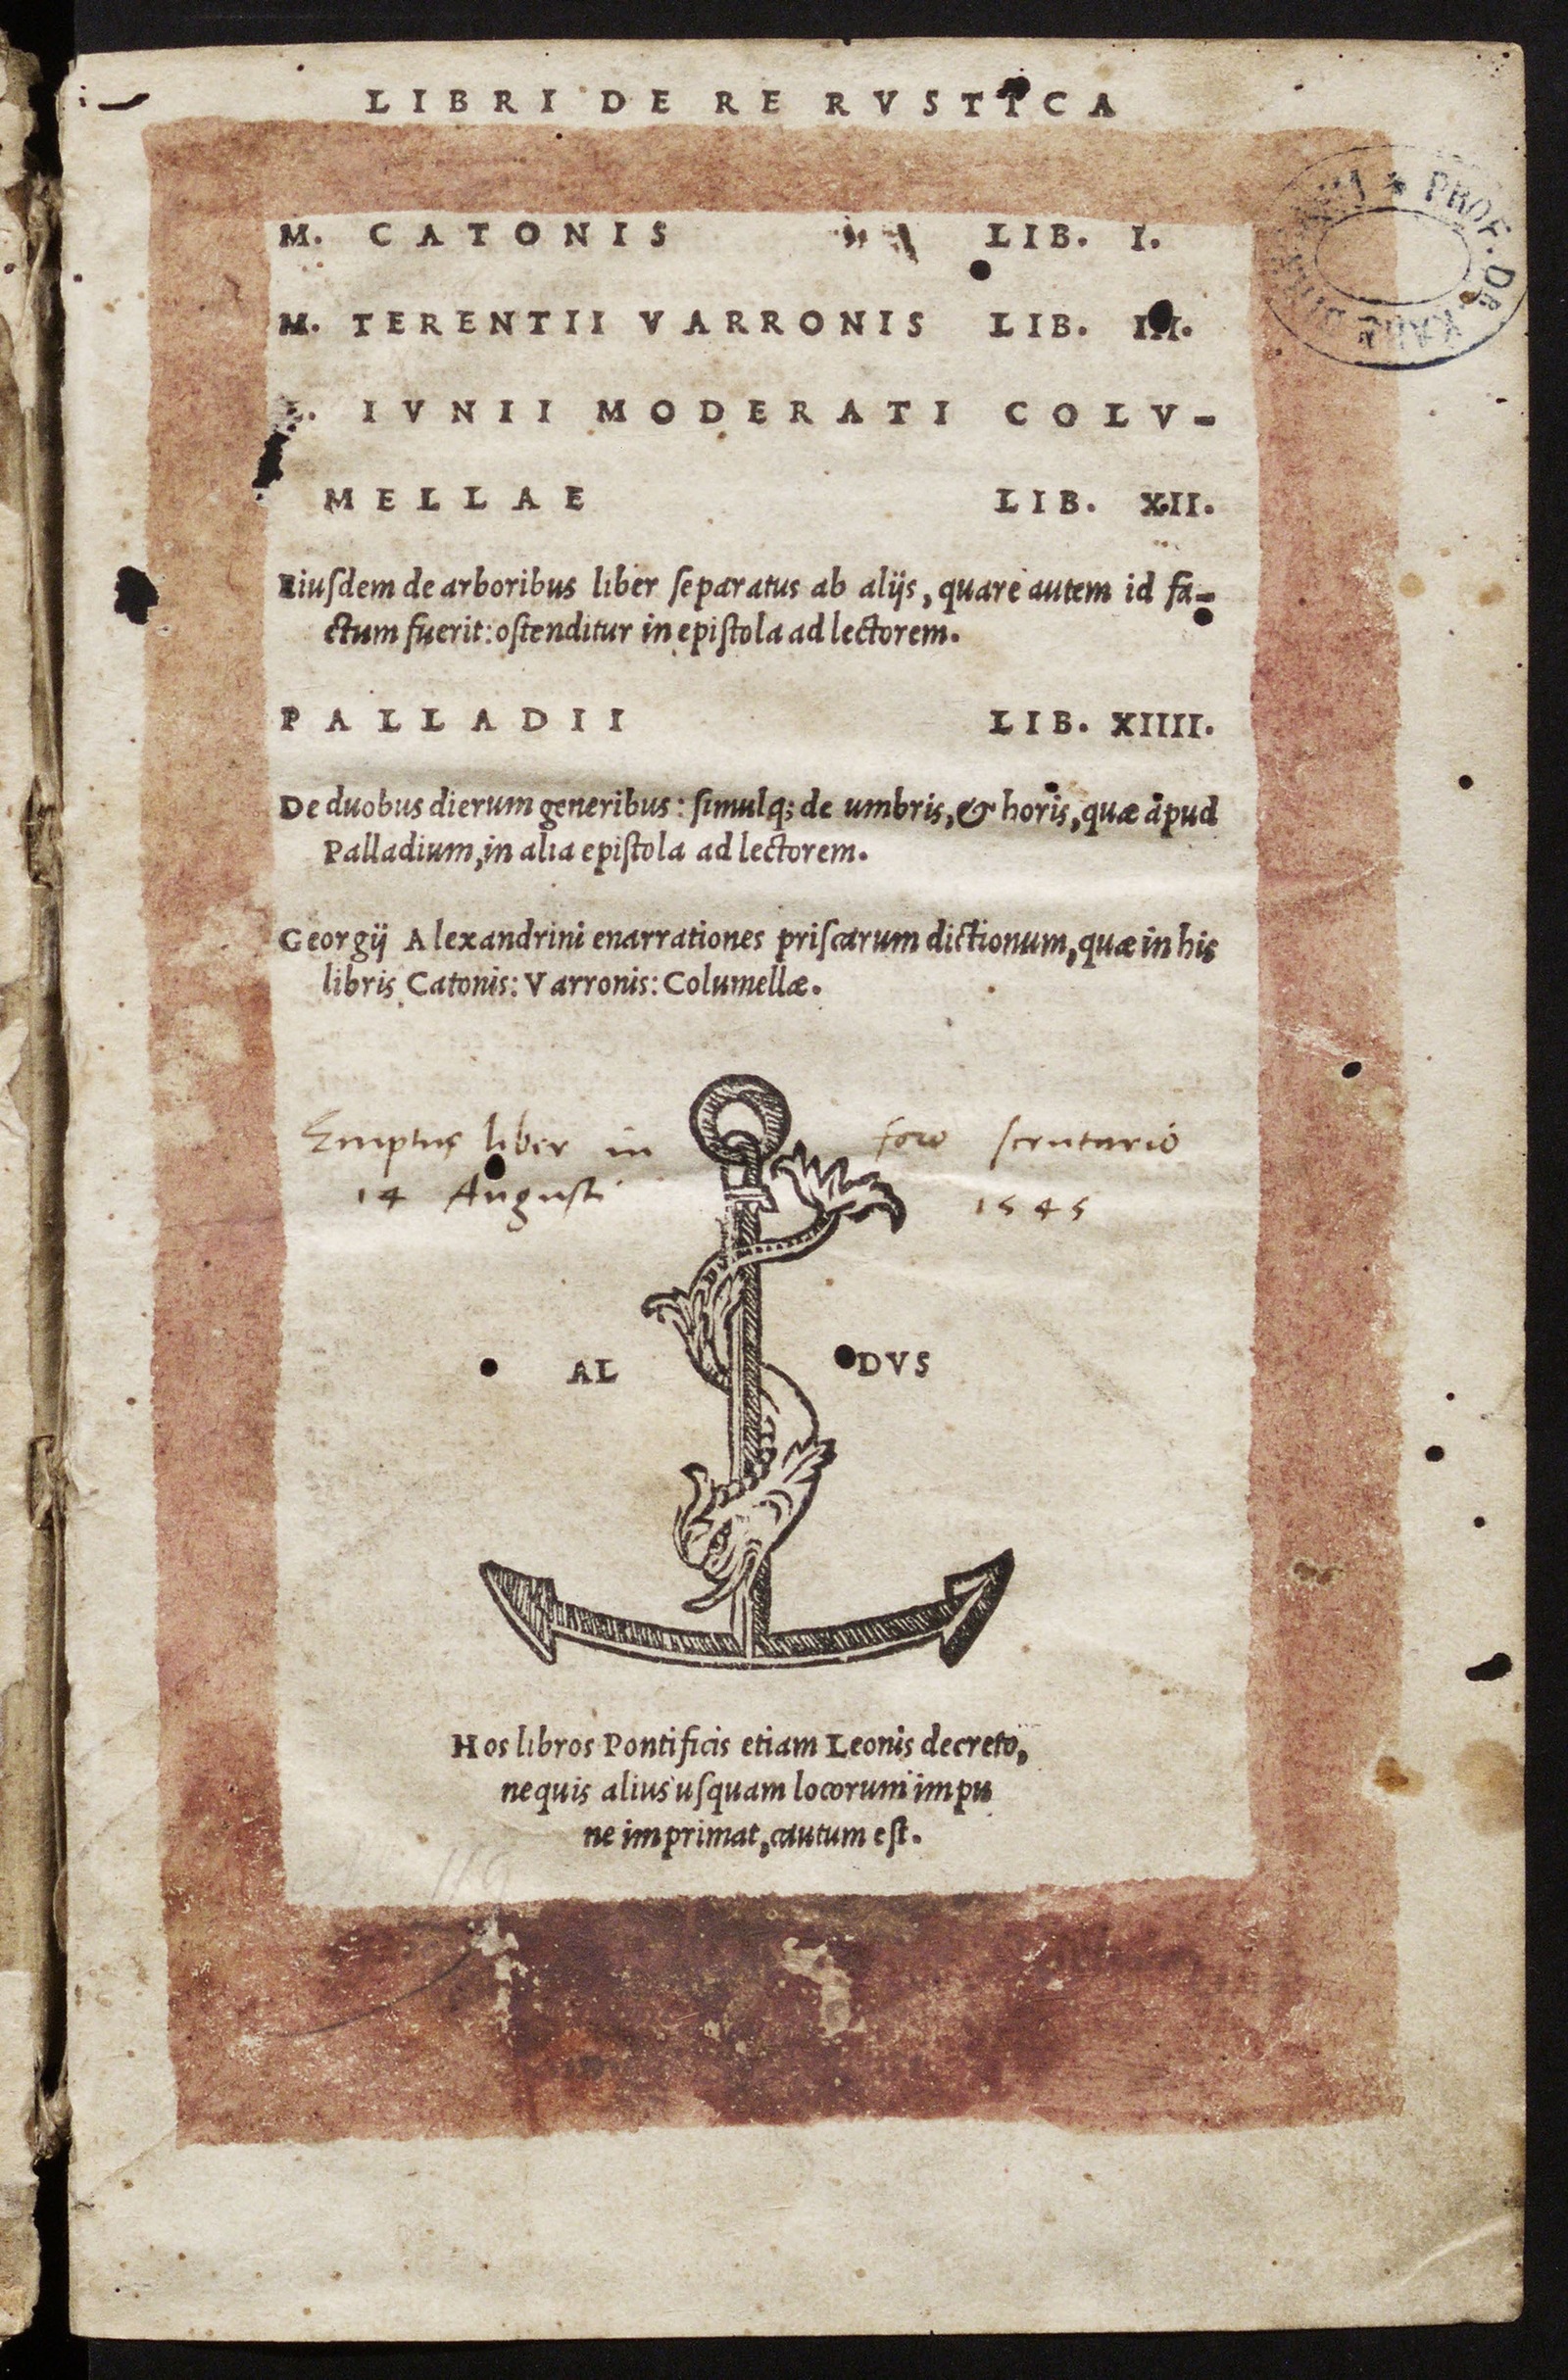 LIBRI DE RE RVSTICA
M. CATONIS LIB. I.
M. TERENTII VARRONIS LIB. III.
L. IVNII MODERATI COLV-
MELLAE LIB. XII.
Eiuſdem de arboribus liber ſeparatus ab alijs, quare autem id fa-
ctum fuerit: oſtenditur in epiſtola ad lectorem.
PALLADII LIB. XIIII.
De duobus dierum generibus: ſimulq; de umbris, & horis, quæ apud
Palladium, in alia epiſtola ad lectorem.
Georgij Alexandrini enarrationes priſcarum dictionum, quæ in his
libris Catonis: Varronis: Columellæ.
Emptus liber in foro scrutario
14 Augusti 1545
AL DVS
Hos libros Pontificis etiam Leonis decreto,
nequis alius uſquam locorum impu
ne imprimat, cautum eſt.
PROF. DR